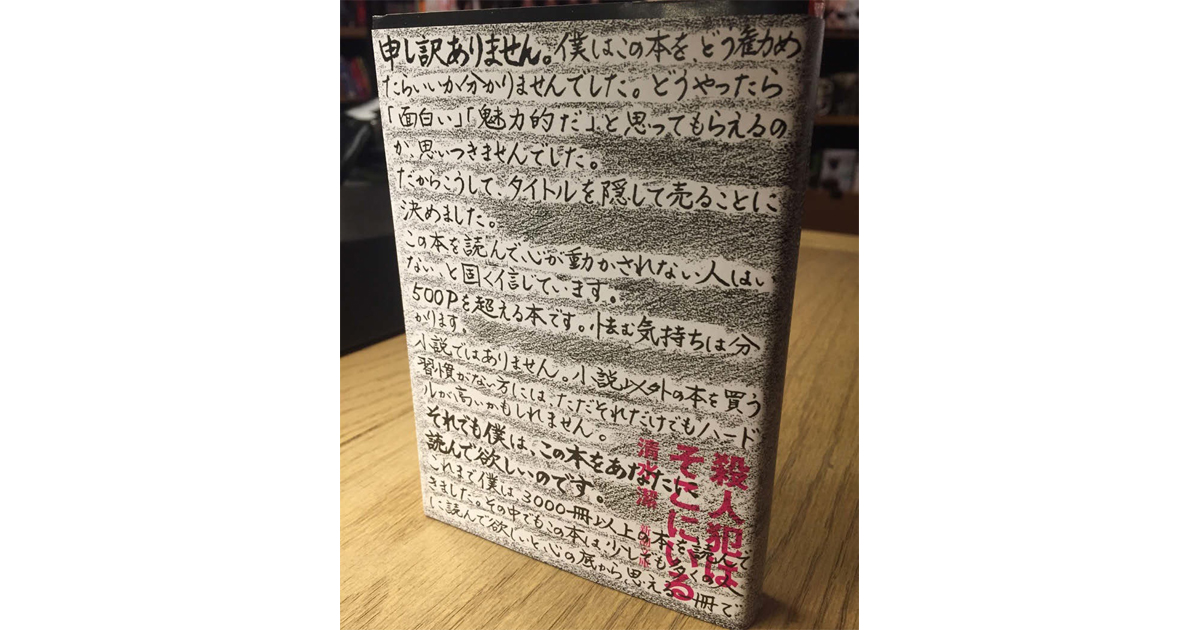 申し訳ありません。僕はこの本を、どう勧め
たらいいか分かりませんでした。どうやったら
「面白い」「魅力的だ」と思ってもらえるの
か、思いつきませんでした。
だからこうして、タイトルを隠して売ることに
決めました。
この本を読んで、心が動かされない人はい
ない、と固く信じています。
500Pを超える本です。怯む気持ちは分
かります。
小説ではありません。小説以外の本を買う
習慣がない方には、ただそれだけでもハード
ルが高いかもしれません。
それでも僕は、この本をあなたに
読んで欲しいのです。
これまで僕は3000冊以上の本を読んで
きました。その中でもこの本は、少しでも多くの人
に読んで欲しいと、心の底から思える一冊で
殺人犯は
そこにいる
清水潔